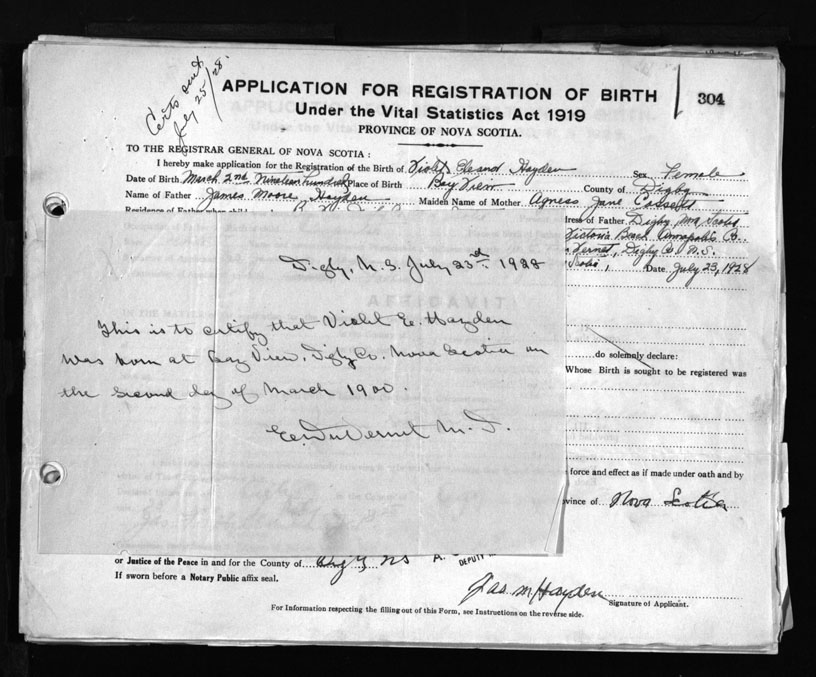 Certs sent
July 25/28.
304
APPLICATION FOR REGISTRATION OF BIRTH
Under the Vital Statistics Act 1919
PROVINCE OF NOVA SCOTIA.
TO THE REGISTRAR GENERAL OF NOVA SCOTIA :
I hereby make application for the Registration of the Birth of Violet Hayden Sex Female
Date of Birth March 2nd Nineteen hundred Place of Birth Bay View County of Digby
Name of Father James Moore Hayden Maiden Name of Mother Agness Jane
Residence of Father when child
dress of Father Digby Nova Scotia
Victoria Beach Annapolis Co.
Vernet, Digby Co N.S.
Scotia, Date July 23, 1928
Digby, N.S. July 23rd 1928
This is to certify that Violet E. Hayden
was born at Bay View, Digby Co. Nova Scotia on
the second day of March 1900.
E. DuVernet M.D.
AFFIDAVIT
do solemnly declare:
Whose Birth is sought to be registered was
force and effect as if made under oath and by
vince of Nova Scotia
or Justice of the Peace in and for the County of Digby NS A.
DEPUTY
If sworn before a Notary Public affix seal.
Jas. M Hayden
Signature of Applicant.
For Information respecting the filling out of this Form, see Instructions on the reverse side.